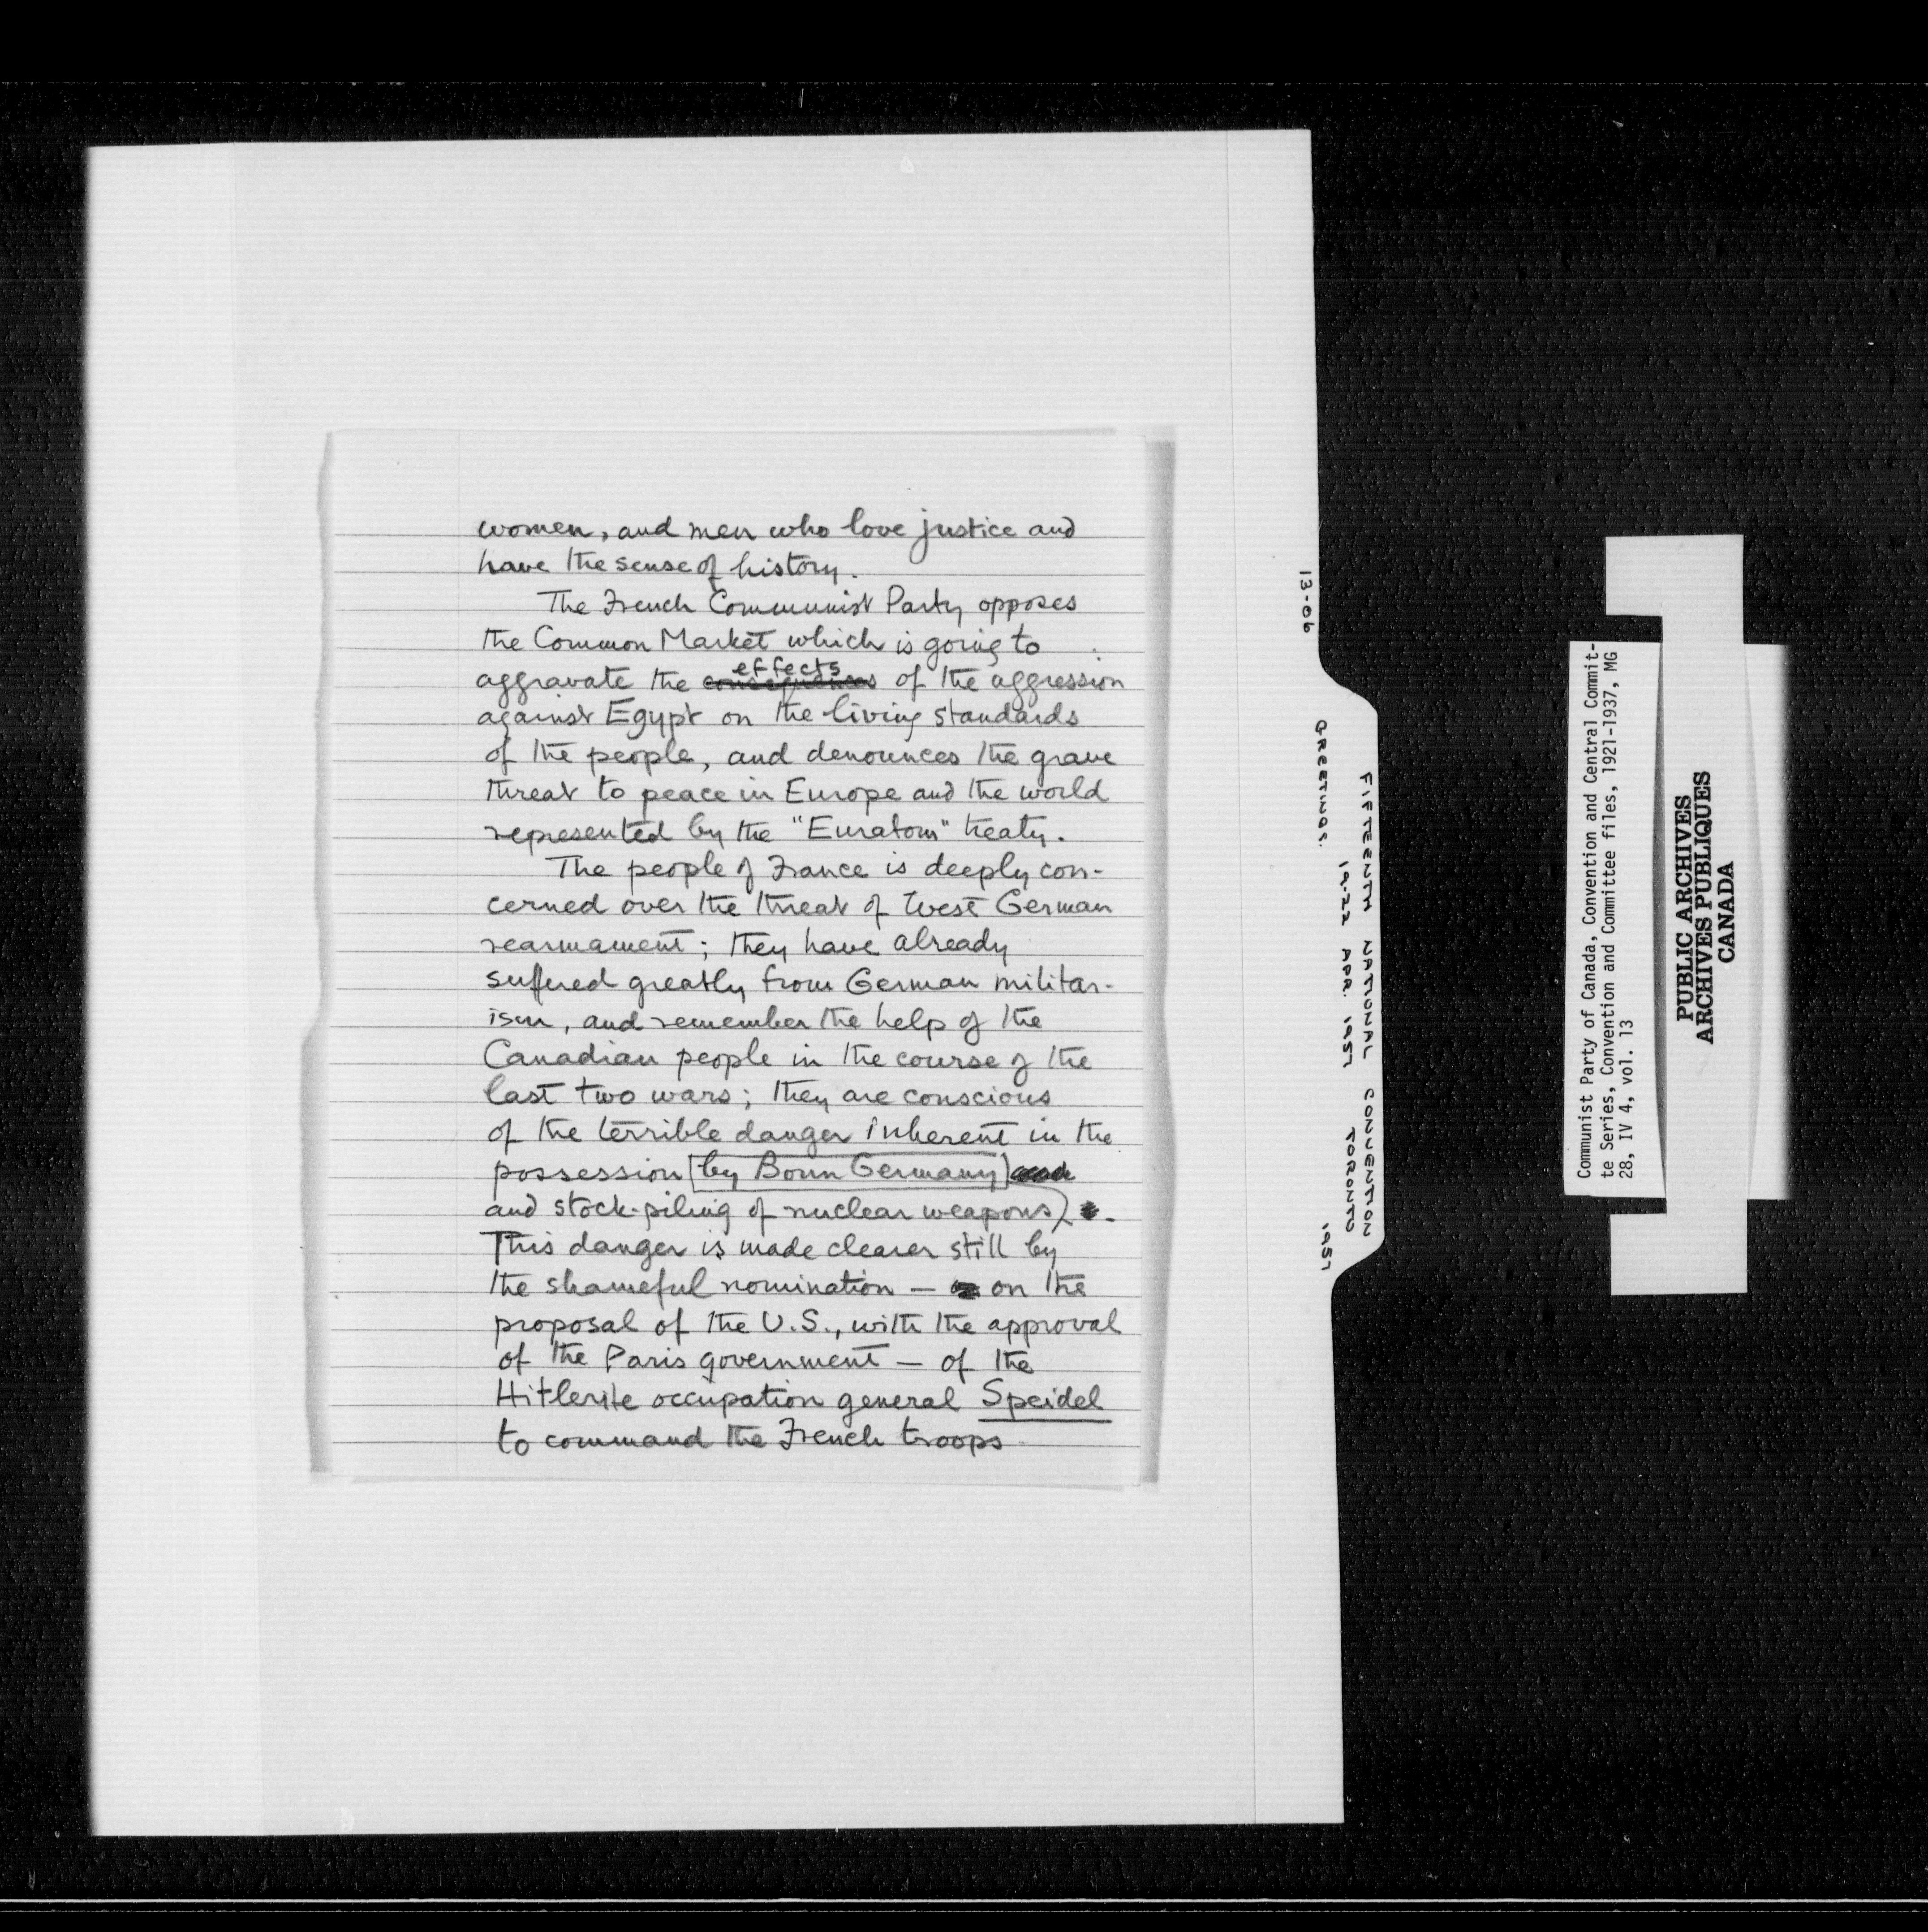 women, and men who love justice and
have the sense of history.
The French Communist Party opposes
the Common Market which is going to
effects
aggravate the consequences of the aggression
against Egypt on the living standards
of the people, and denounces the grave
threat to peace in Europe and the world
represented by the "Euratom" treaty.
The people of France is deeply con-
cerned over the threat of West German
rearmament; they have already
suffered greatly from German militar-
ism, and remember the help of the
Canadian people in the course of the
last two wars; they are conscious
of the terrible danger inherent in the
possession [by Bonn Germany]
and stock-piling of nuclear weapons).
This danger is made clearer still by
the shameful nomination — on the
proposal of the U.S., with the approval
of the Paris government — of the
Hitlerite occupation general Speidel
to command the French troops
13-06
GREETINGS.
FIFTEENTH NATIONAL CONVENTION
19-22 APR. 1957 TORONTO
1957
Communist Party of Canada, Convention and Central Commit-
te Series, Convention and Committee files, 1921-1937, MG
28, IV 4, vol. 13
PUBLIC ARCHIVES
ARCHIVES PUBLIQUES
CANADA